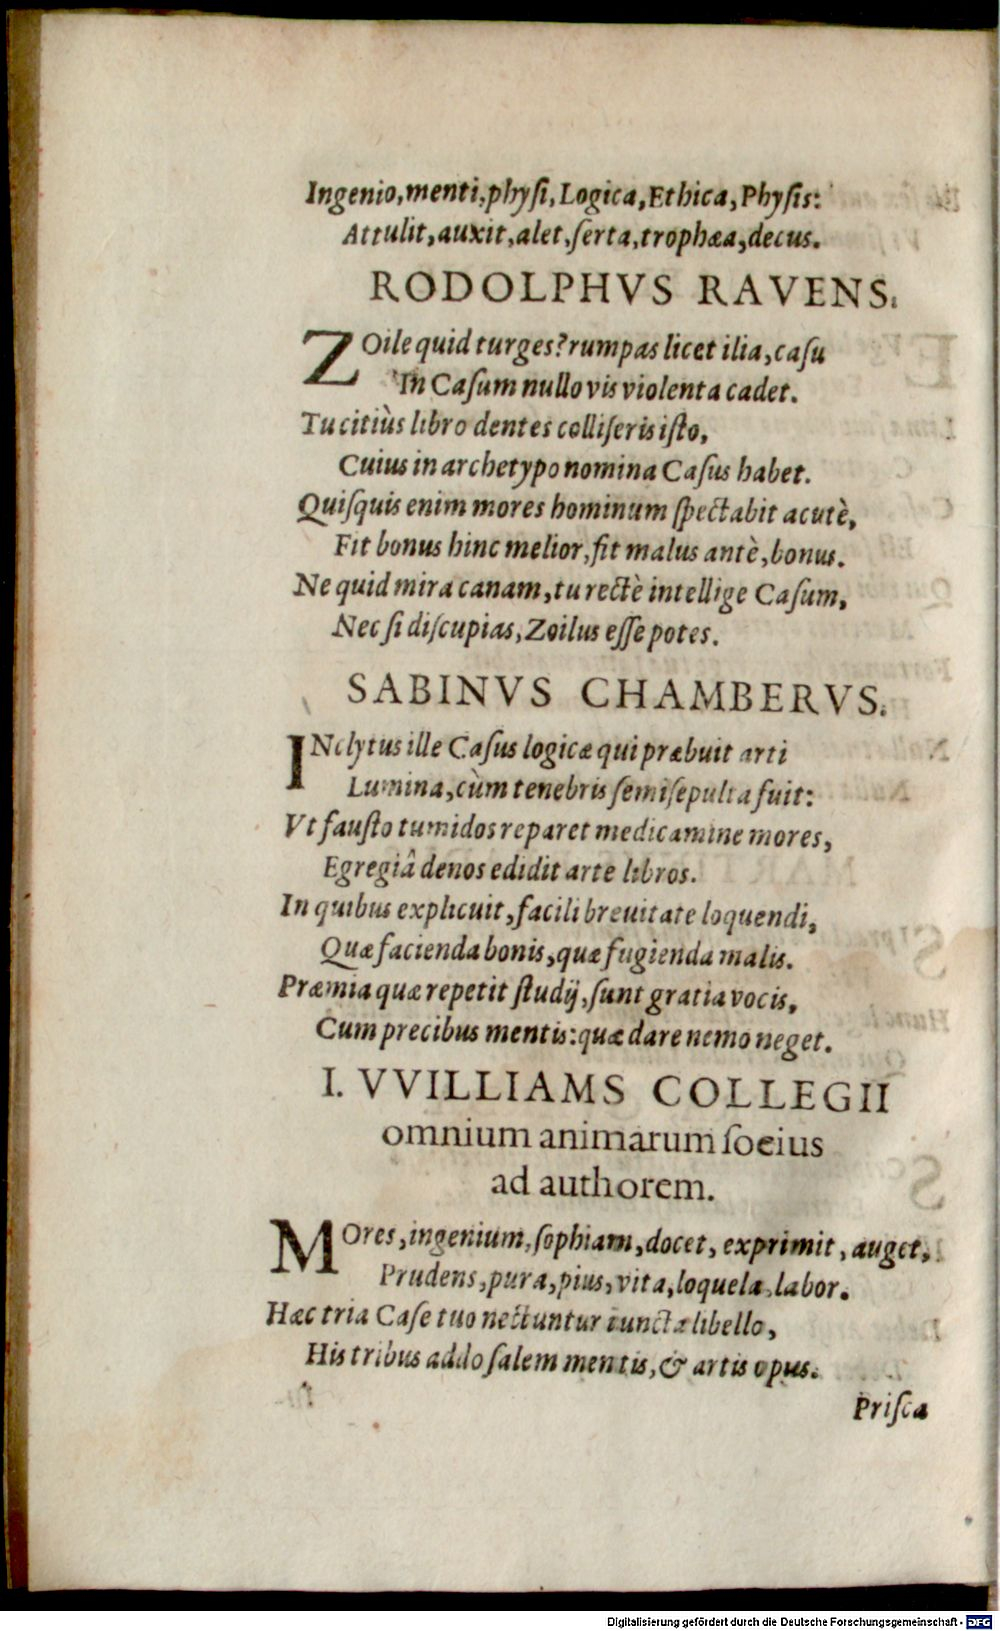 Ingenio, menti, physi, Logica, Ethica, Physis:
Attulit, auxit, alet, ſerta, trophæa, decus.
RODOLPHVS RAVENS.
ZOile quid turges? rumpas licet ilia, caſu
In Caſum nullo vis violenta cadet.
Tu citiùs libro dentes colliſeris iſto,
Cuius in archetypo nomina Caſus habet.
Quiſquis enim mores hominum ſpectabit acutè,
Fit bonus hinc melior, fit malus antè, bonus.
Ne quid mira canam, tu rectè intellige Caſum,
Nec ſi diſcupias, Zoilus eſſe potes.
SABINVS CHAMBERVS.
INclytus ille Caſus logicæ qui præbuit arti
Lumina, cùm tenebris ſemiſepulta fuit:
Vt fauſto tumidos reparet medicamine mores,
Egregiâ denos edidit arte libros.
In quibus explicuit, facili breuitate loquendi,
Quæ facienda bonis, quæ fugienda malis.
Præmia quæ repetit ſtudij, ſunt gratia vocis,
Cum precibus mentis: quæ dare nemo neget.
I. VVILLIAMS COLLEGII
omnium animarum ſocius
ad authorem.
MOres, ingenium, ſophiam, docet, exprimit, auget,
Prudens, pura, pius, vita, loquela, labor.
Hæc tria Caſe tuo nectuntur iunctæ libello,
His tribus addo ſalem mentis, & artis opus.
Priſca
Digitalisierung gefördert durch die Deutsche Forschungsgemeinschaft - DFG